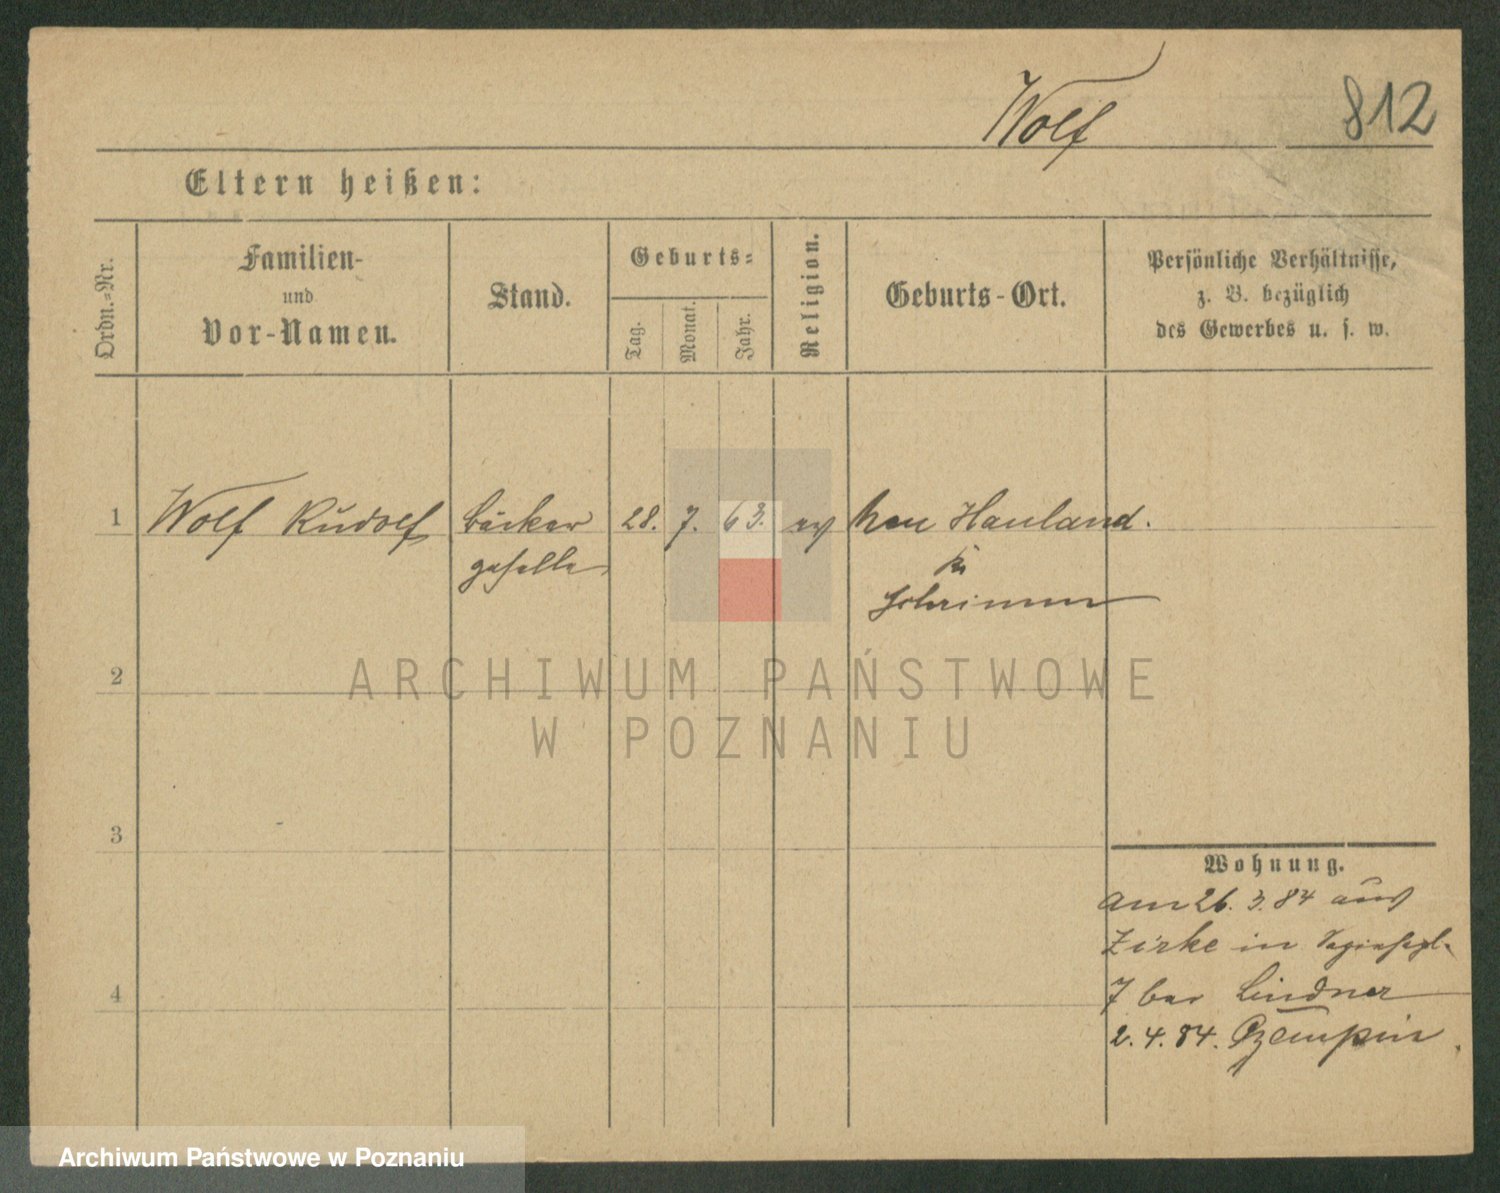 Wolf 812
Eltern heißen:
Ordn.-Nr.
Familien-
und
Vor-Namen.
Stand.
Geburts-
Tag.
Monat.
Jahr.
Religion.
Geburts-Ort.
Persönliche Verhältnisse,
z. B. bezüglich
des Gewerbes u. s. w.
1 Wolf Rudolf Bäcker 28. 7. 63. ev Neu Hauland.
geselle Kr
Schrimm
2
ARCHIWUM PAŃSTWOWE
W POZNANIU
3
Wohnung.
am 26. 3. 84 aus
Zirke in
4
7 bei Lindner
2. 4. 84. Czempin
Archiwum Państwowe w Poznaniu